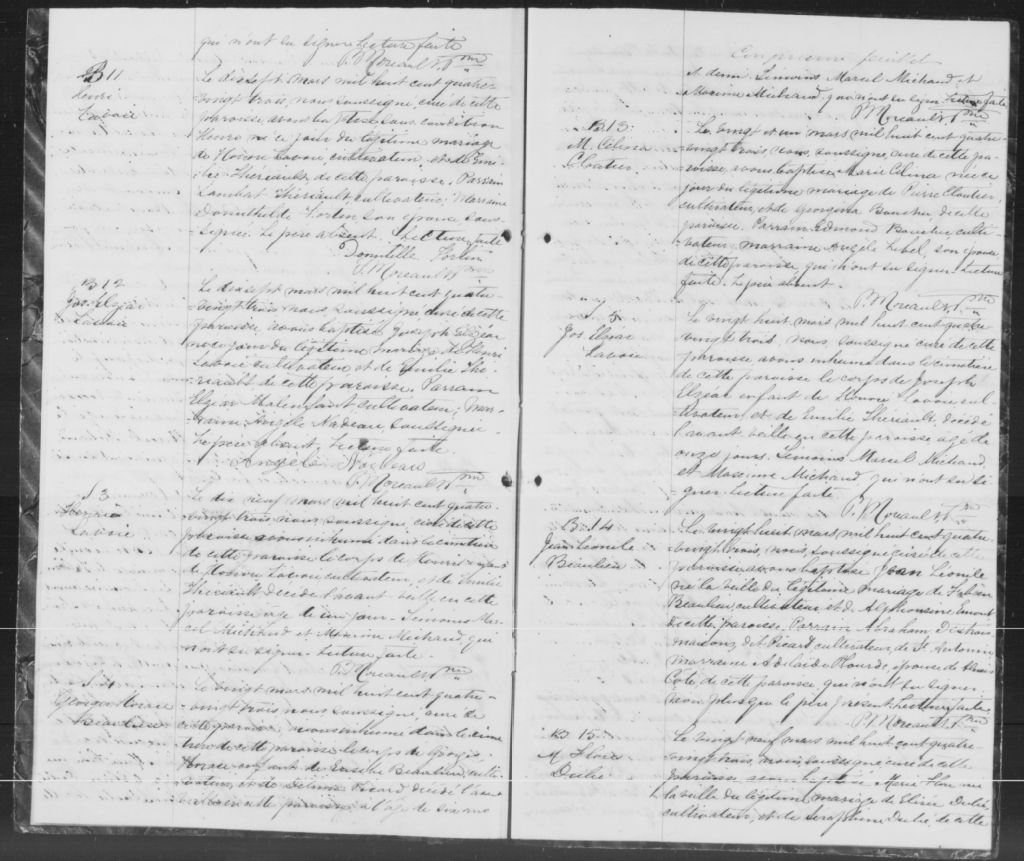 qui n'ont su signer Lecture faite
P. Moreault Ptre
B 11
Henri
Lavoie
Le dix sept mars mil huit cent quatre-
vingt trois, nous soussigné, curé de cette
paroisse avons baptisé sous condition
Henri né ce jour du légitime mariage
de Honoré Lavoie cultivateur, et de Emi-
lie Theriault, de cette paroisse. Parrain
Theriault, cultivateur, Marraine
Fortin son épouse sous-
signée. Le père absent. Lecture faite
Fortin
P. Moreault Ptre
B 12
Jos. Elzear
Lavoie
Le dix sept mars mil huit cent quatre
vingt trois nous soussigné curé de cette
paroisse, avons baptisé Joseph Elzéar
né ce jour du légitime mariage de Henri
Lavoie cultivateur et de Emilie The-
riault de cette paroisse. Parrain
Elzear Malenfant cultivateur, Mar-
raine Angèle Nadeau, soussignée
Le père absent. Lecture faite
Angèle Nadeau
P. Moreault Ptre
S 3
Henri
Lavoie
Le dix neuf mars mil huit cent quatre
vingt trois nous soussigné, curé de cette
paroisse avons inhumé dans le cimetière
de cette paroisse le corps de Henri enfant
de Honoré Lavoie cultivateur, et de Emilie
Theriault décédé l'avant veille en cette
paroisse agé de un jour. Temoins Mar-
cel Michaud et Maxime Michaud, qui
n'ont su signer. Lecture faite.
P. Moreault Ptre
S 4
Georges Honoré
Beaulieu
Le vingt mars mil huit cent quatre-
vingt trois nous soussigné, curé de
cette paroisse, avons inhumé dans le cime
tière de cette paroisse le corps de Georges
Honoré enfant de Beaulieu culti-
vateur, et de Picard décédé l'avant
en cette paroisse, a l'age de six mo
feuillet
et demi. Témoins Marcel Michaud et
Maxime Michaud qui n'ont su signer Lecture faite
P. Moreault Ptre
B 13
M. Celina
Cloutier
Le vingt et un mars mil huit cent quatre
vingt trois, nous, soussigné, curé de cette pa-
roisse, avons baptisé Marie Celina née ce
jour du légitime mariage de Pierre Cloutier,
cultivateur, et de Georgina Boucher, de cette
paroisse. Parrain Edmond culti-
vateur, marraine Angèle Lebel, son épouse
de cette paroisse, qui n'ont su signer. Lecture
faite. Le père absent.
P. Moreault Ptre
S. 5
Jos Elzéar
Lavoie
Le vingt huit, mars mil huit cent quatre
vingt trois, nous, soussigné curé de cette
paroisse avons inhumé dans le cimetière
de cette paroisse le corps de Joseph
Elzear enfant de Honoré Lavoie cul-
tivateur, et de Emilie Theriault, décédé
l'avant veille en cette paroisse agé de
onze jours. Temoins Marcel Michaud
et Maxime Michaud qui n'ont su si
gner Lecture faite
P. Moreault Ptre
B. 14
Jean Leonile
Beaulieu
Le vingt huit, mars mil huit cent quatre
vingt trois, nous, soussigné curé de cette
paroisse avons baptisé Jean Léonile
né la veille du légitime mariage de Fabien
Beaulieu, cultivateur et de Alphonsine Emond
de cette paroisse. Parrain Abraham Destrois
maisons, dit Picard cultivateur, de St. Antonin
marraine Adelaide Plourde épouse de
Coté de cette paroisse qui n'ont su signer
non plus que le père présent Lecture faite
P. Moreault Ptre
B 15
M. Flore
Dubé
Le vingt neuf mars mil huit cent quatre-
vingt trois, nous soussigné curé de cette
paroisse avons baptisé Marie Flore née
la veille du légitime mariage de Elisée Dubé
cultivateur, et de Seraphine Dubé, de cette